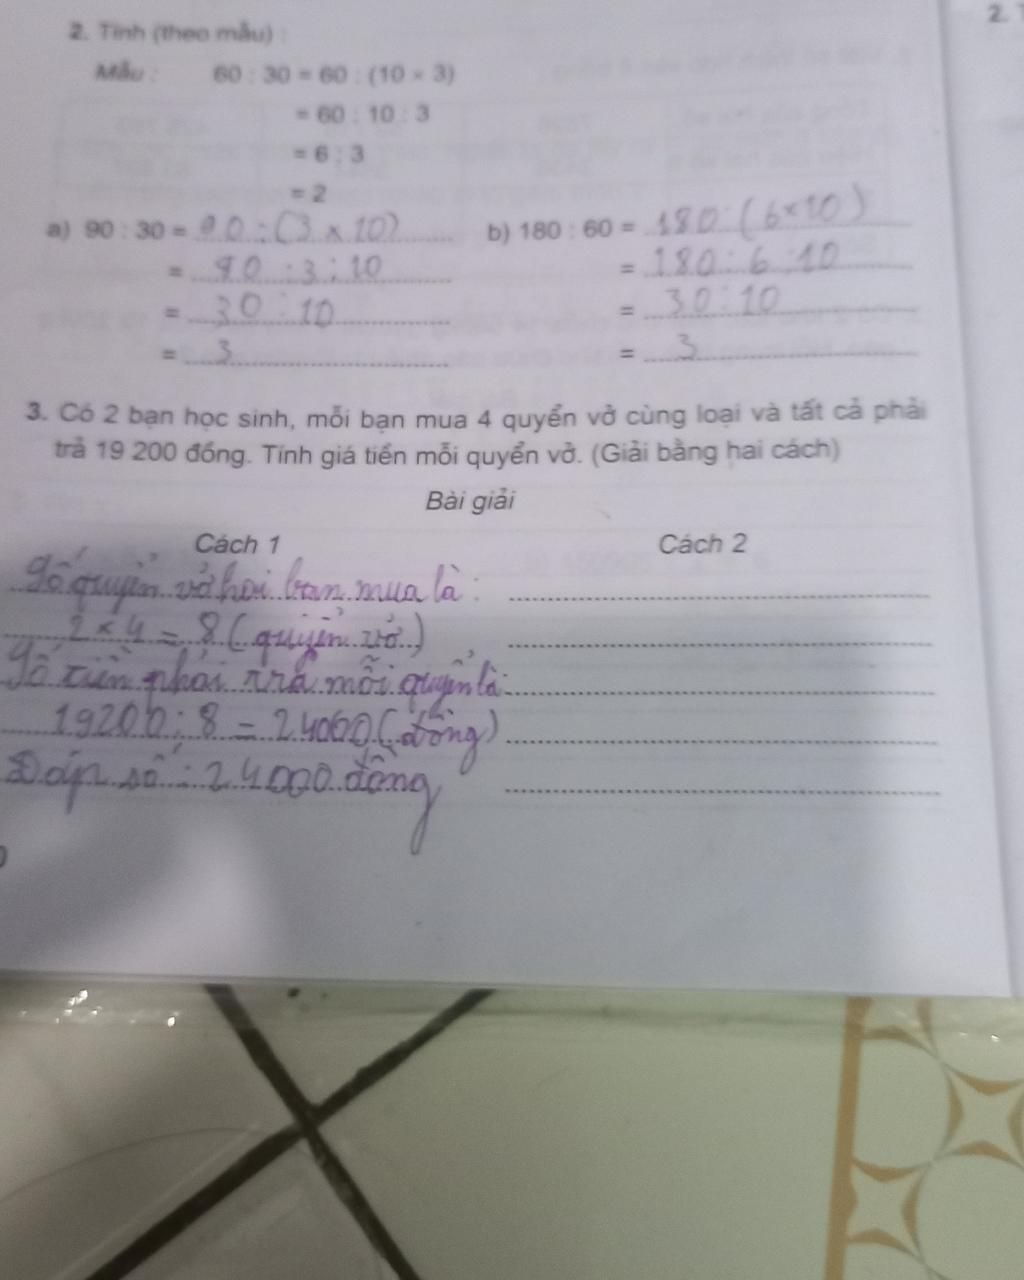 2.
2. Tính (theo mẫu) :
Mẫu : 60 : 30 = 60 : (10 × 3)
= 60 : 10 : 3
= 6 : 3
= 2
a) 90 : 30 = 90 : (3 × 10)
= 90 : 3 : 10
= 30 : 10
= 3
b) 180 : 60 = 180 : (6 × 10)
= 180 : 6 : 10
= 30 : 10
= 3
3. Có 2 bạn học sinh, mỗi bạn mua 4 quyển vở cùng loại và tất cả phải
trả 19 200 đồng. Tính giá tiền mỗi quyển vở. (Giải bằng hai cách)
Bài giải
Cách 1
Số quyển vở hai bạn mua là :
2 × 4 = 8 (quyển vở)
Số tiền phải trả mỗi quyển là:
19200 : 8 = 24000 (đồng)
Đáp số : 24000 đồng
Cách 2